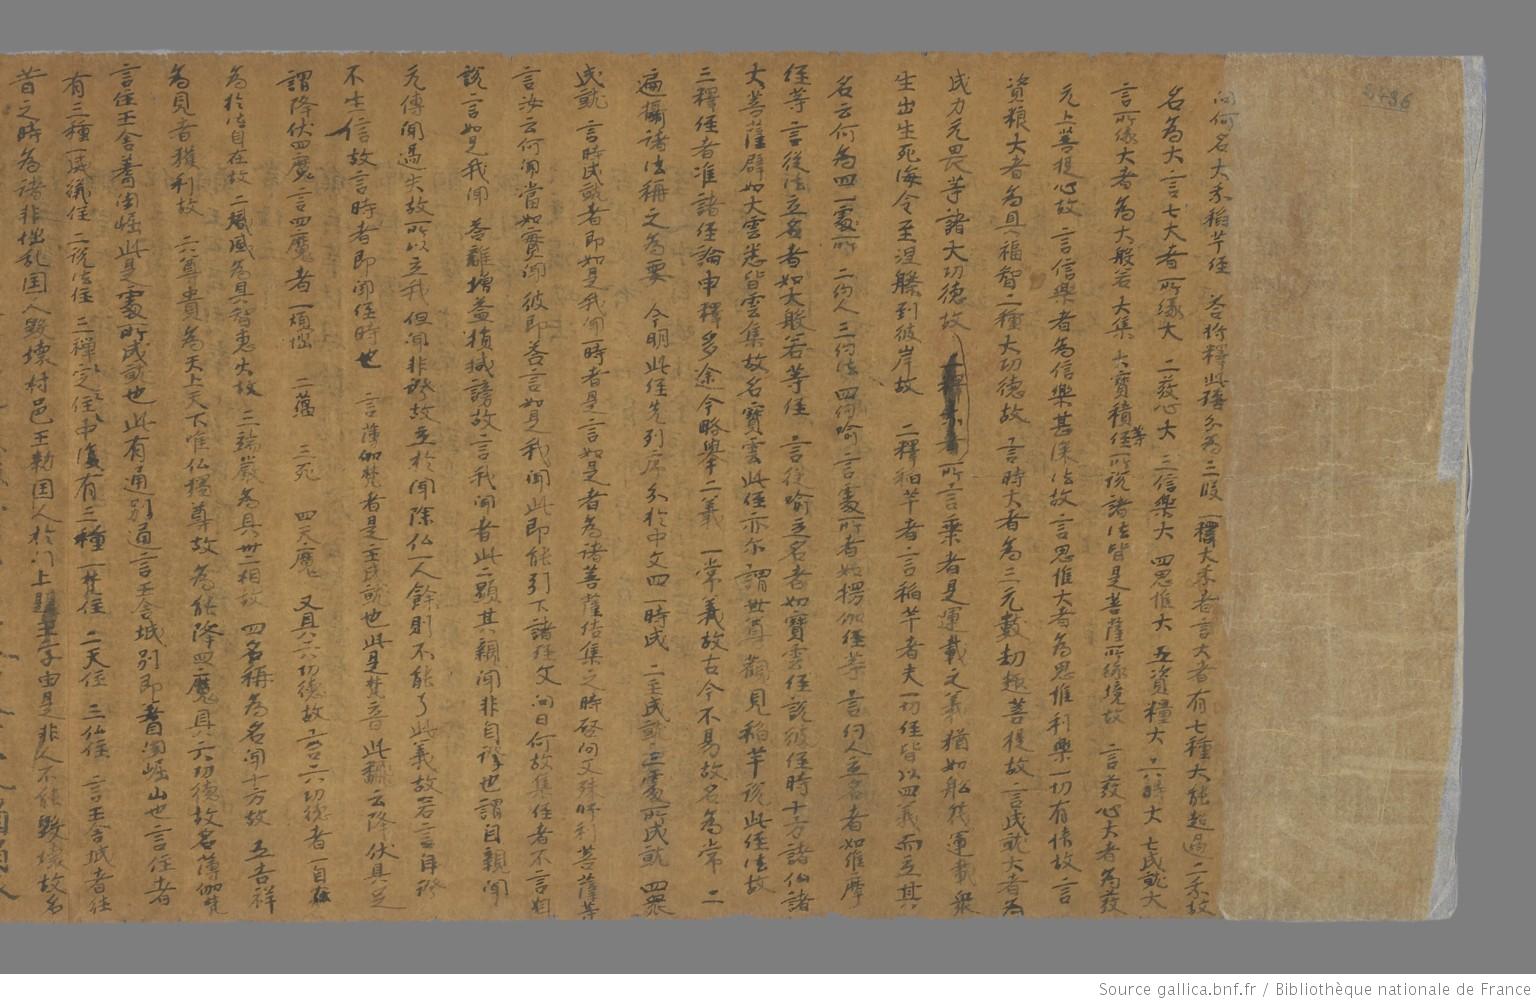 問何名大乘稻芉經 答將釋此経分為三段 一釋大乘者言大者有七種大能超過二乘故
名為大 言七大者所緣大 二發心大 三信樂大 四思惟大 五資糧大 六時大 七成就大
言所緣大者為大般若大集大寶積經等所說諸法皆是菩薩所緣境故 言發心大者為發
无上菩提心故 言信樂者為信樂甚深法故言思惟大者為思惟利樂一切有情故言
資粮大者為具福智二種大功德故 言時大者為三无數劫趣菩提故 言成就大者為
成力无畏等諸大功德故 所言乘者是運載之義猶如舩筏運載衆
生出生死海令至涅槃到彼岸故 二釋稻芉者言稻芉者夫一切經皆以四義而立其
名云何為四 一處所 二約人 三約法 四約喻 言處所者如楞伽經等 言約人立名者如維摩
經等 言從法立名者如大般若等經 言從喻立名者如寶雲經說彼經時十方諸
大菩薩辟如大雲悉皆雲集故名寶雲此經亦尔謂世尊觀見稻芉說此經法故
三釋經者准諸經論申釋多途今略舉二義 一常義故古今不易故名為常 二
遍攝諸法稱之為要 今明此經先列序分於中文四 一時成 二主成就 三處所成就 四衆
成就 言時成就者即如是我聞一時者是言如是者為諸菩薩結集之時啓問文殊師利菩薩等
言汝云何聞當如實聞彼即答言如是我聞此即能引下諸經文 問曰何故集經者不言
說言如是我聞 答離增益損減謗故言我聞者此二顯其親聞非自證也謂自親聞
无傳聞過失故所以立我但聞非證故立於聞除仏一人餘則不能了此義故若言自證
不生信故言時者即聞經時也 言薄伽梵者是主成就也此是梵音此翻云降伏具足
謂降伏四魔 言四魔者 一煩惱 二蘊 三死 四天魔 又具六功德故言六功德者 一自在
為於法自在故 二熾盛為具智惠火故 三端嚴為具卅二相故 四名稱為名聞十方故 五吉祥
為見者獲利故 六尊貴為天上天下唯仏獨尊故 為能降四魔具六功德故名薄伽梵
言住王舍耆闍崛此是處所成就也此有通別通言王舍城別即耆闍崛山也 言住者
有三種 一威儀住 二說法住 三禪定住 中復有三種 一梵住 二天住 三仏住 言王舍城者往
昔之時為諸非人惱乱国人毀壞村邑王勑国人於门上題王字由是非人不能毀壞故名